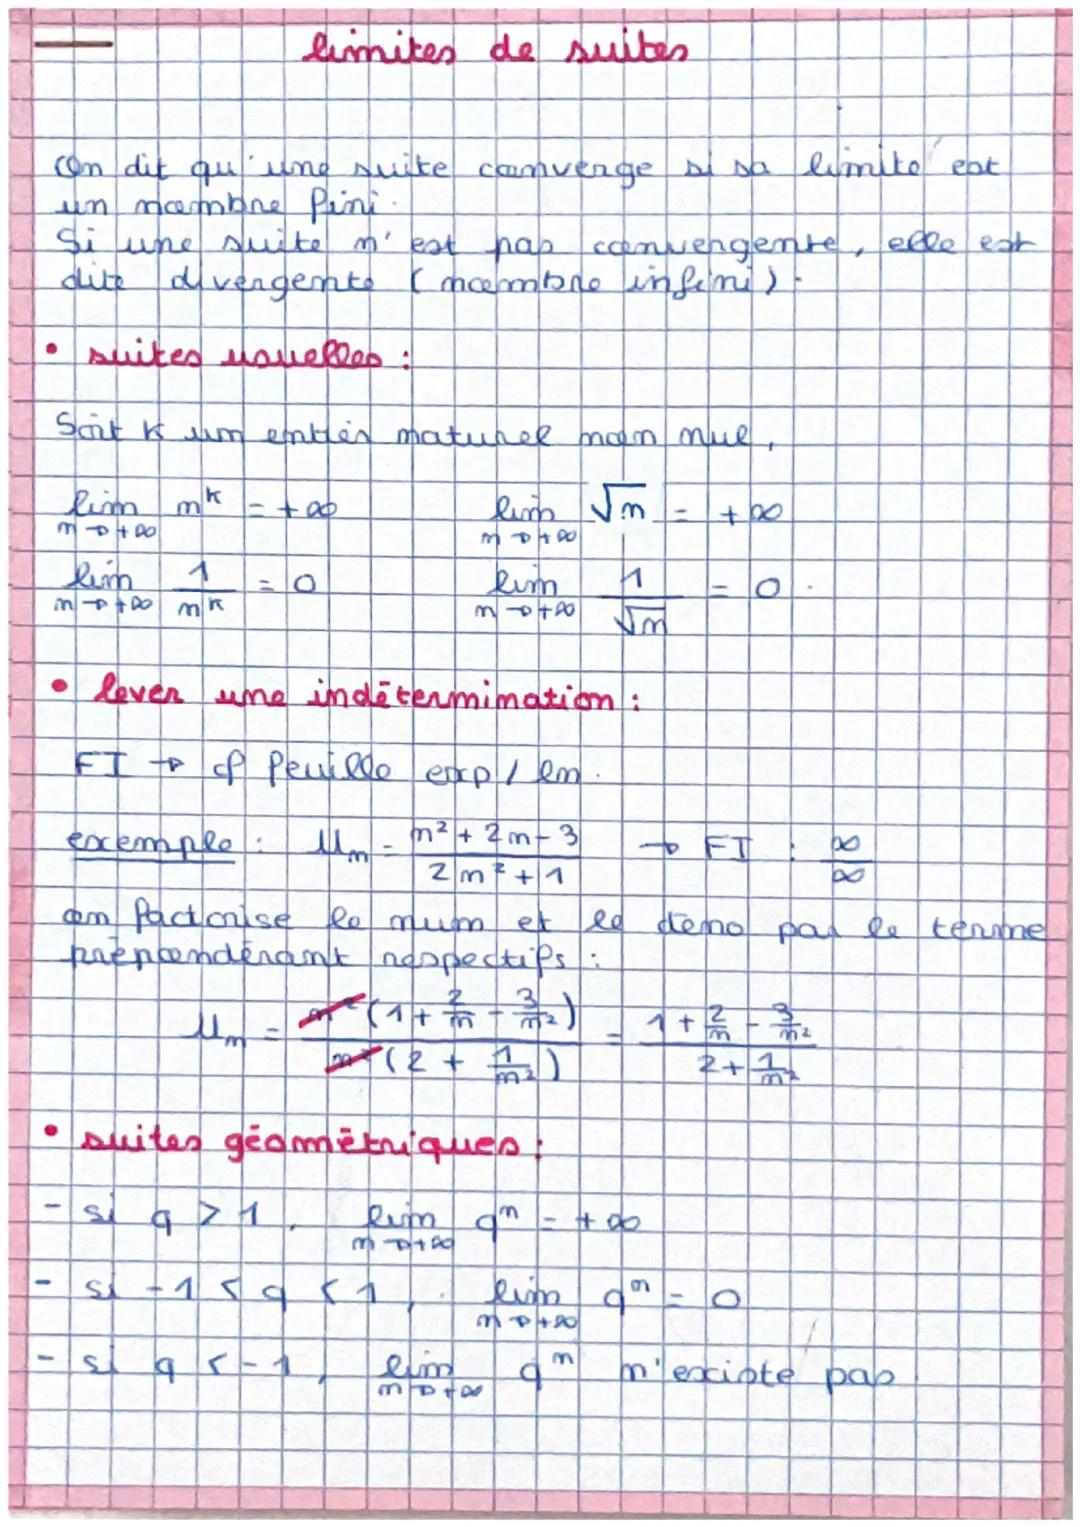 limites de suites
On dit qu'une suite converge si sa limite est
un nombre fini.
Si une suite n'est pas convergente, elle est
dite divergente (nombre infini).
• suites usuelles :
Soit k un entier naturel non nul,
lim n^k = +∞ lim √n = +∞
n→+∞ n→+∞
lim 1/n^k = 0 lim 1/√n = 0.
n→+∞ n→+∞
• lever une indétermination :
FI → cf feuille exp / ln.
exemple : Un = (n² + 2n - 3)/(2n² + 1) → FI : ∞/∞
on factorise le num et le déno par le terme
prépondérant respectifs :
Un = n²(1 + 2/n - 3/n²)/n²(2 + 1/n²) = (1 + 2/n - 3/n²)/(2 + 1/n²)
• suites géométriques :
- si q > 1, lim q^n = +∞
n→+∞
- si -1 < q < 1, lim q^n = 0
n→+∞
- si q < -1, lim q^n n'existe pas
n→+∞